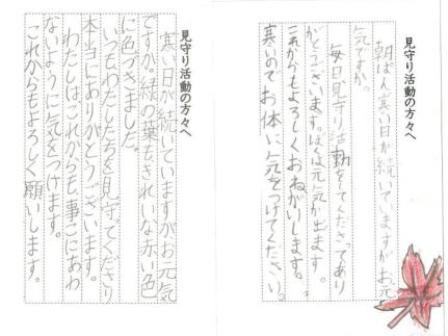 見守り活動の方々へ
朝ばん寒い日が続いていますがお元
気ですか。
毎日見守り活動をしてくださってあり
がとうございます。ぼくは元気が出ます。
これからもよろしくおねがいします。
寒いのでお体に気をつけてください。
見守り活動の方々へ
寒い日が続いていますがお元気
ですか。緑の葉もきれいな赤い色
に色づきました。
いつもわたしたちを見守ってくださり
本当にありがとうございます。
わたしはこれからも、事こにあわ
ないように気をつけます。
これからもよろしく願いします。